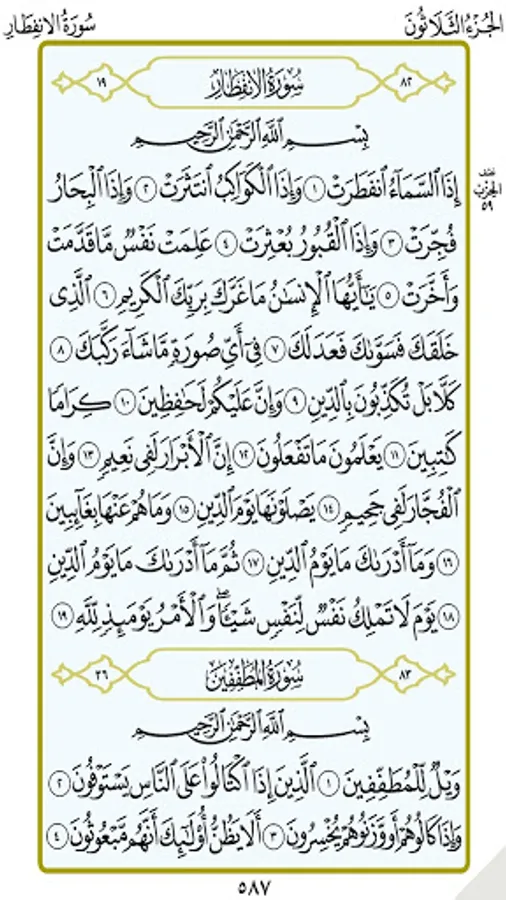 الجزء الثلاثون
سورة الانفطار
٨٢ سُورَةُ الِانفِطَارِ ١٩
بِسْمِ اللَّهِ الرَّحْمَٰنِ الرَّحِيمِ
إِذَا السَّمَاءُ انفَطَرَتْ ١ وَإِذَا الْكَوَاكِبُ انتَثَرَتْ ٢ وَإِذَا الْبِحَارُ
نصف الحزب ٥٩
فُجِّرَتْ ٣ وَإِذَا الْقُبُورُ بُعْثِرَتْ ٤ عَلِمَتْ نَفْسٌ مَّا قَدَّمَتْ
وَأَخَّرَتْ ٥ يَٰٓأَيُّهَا الْإِنسَٰنُ مَا غَرَّكَ بِرَبِّكَ الْكَرِيمِ ٦ الَّذِى
خَلَقَكَ فَسَوَّىٰكَ فَعَدَلَكَ ٧ فِىٓ أَىِّ صُورَةٍ مَّا شَآءَ رَكَّبَكَ ٨
كَلَّا بَلْ تُكَذِّبُونَ بِالدِّينِ ٩ وَإِنَّ عَلَيْكُمْ لَحَٰفِظِينَ ١٠ كِرَامًا
كَٰتِبِينَ ١١ يَعْلَمُونَ مَا تَفْعَلُونَ ١٢ إِنَّ الْأَبْرَارَ لَفِى نَعِيمٍ ١٣ وَإِنَّ
الْفُجَّارَ لَفِى جَحِيمٍ ١٤ يَصْلَوْنَهَا يَوْمَ الدِّينِ ١٥ وَمَا هُمْ عَنْهَا بِغَآئِبِينَ
١٦ وَمَآ أَدْرَىٰكَ مَا يَوْمُ الدِّينِ ١٧ ثُمَّ مَآ أَدْرَىٰكَ مَا يَوْمُ الدِّينِ
١٨ يَوْمَ لَا تَمْلِكُ نَفْسٌ لِّنَفْسٍ شَيْـًٔا ۖ وَالْأَمْرُ يَوْمَئِذٍ لِّلَّهِ ١٩
٨٣ سُورَةُ المُطَفِّفِينَ ٣٦
بِسْمِ اللَّهِ الرَّحْمَٰنِ الرَّحِيمِ
وَيْلٌ لِّلْمُطَفِّفِينَ ١ الَّذِينَ إِذَا اكْتَالُوا عَلَى النَّاسِ يَسْتَوْفُونَ ٢
وَإِذَا كَالُوهُمْ أَو وَّزَنُوهُمْ يُخْسِرُونَ ٣ أَلَا يَظُنُّ أُو۟لَٰٓئِكَ أَنَّهُم مَّبْعُوثُونَ ٤
٥٨٧